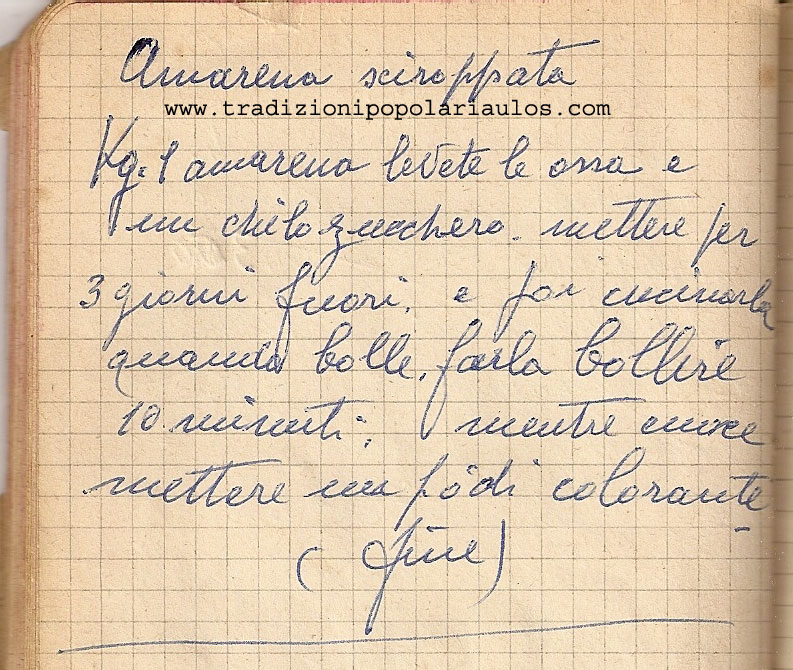 Amarena sciroppata
www.tradizionipopolariaulos.com
Kg. 1 amarena levete le ossa e
un chilo zucchero. mettere per
3 giorni fuori. e poi cucinarla
quando bolle. farla bollire
10 minuti; mentre cuoce
mettere un pò di colorante
(fine)